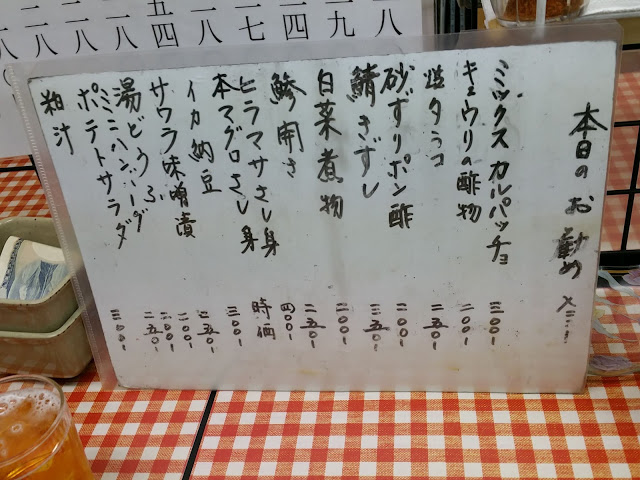 本日のお勧めメニュー
ミックスカルパッチョ 三〇〇ー
キュウリの酢物 二〇〇ー
塩タラコ 二五〇ー
砂ずりポン酢 二〇〇ー
鯖きずし 三五〇ー
白菜煮物 二〇〇ー
鯵開き 二五〇ー
ヒラマサさし身 四〇〇ー
本マグロさし身 時価
イカ納豆 三〇〇ー
サワラ味噌漬 三五〇ー
湯どうふ 二〇〇ー
ミニハンバーグ 二〇〇ー
ポテトサラダ 二五〇ー
粕汁 三〇〇ー